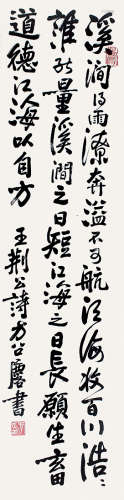 溪澗得雨潦奔溢不可航江海收百川浩〻
誰能量溪澗之日短江海之日長願生畜
道德江海以自方
王荊公詩方召麐書